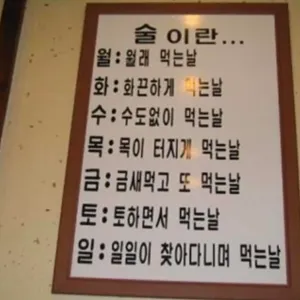 술이란...
월:월래 먹는날
화:화끈하게 먹는날
수:수도없이 먹는날
목:목이 터지게 먹는날
금:금새먹고 또 먹는날
토:토하면서 먹는날
일:일일이 찾아다니며 먹는날